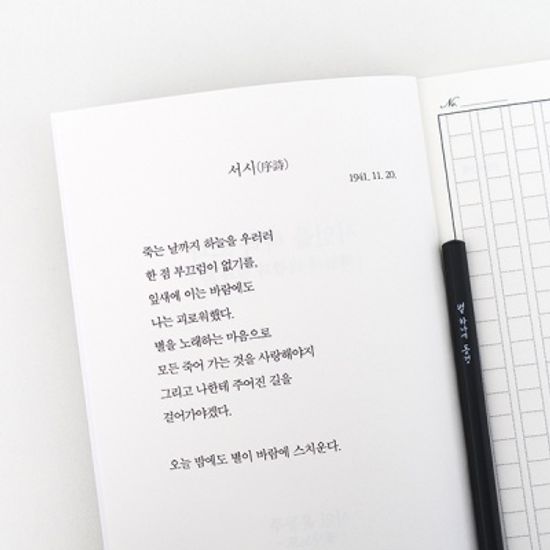 서시(序詩)
1941. 11. 20.
죽는 날까지 하늘을 우러러
한 점 부끄럼이 없기를,
잎새에 이는 바람에도
나는 괴로워했다.
별을 노래하는 마음으로
모든 죽어 가는 것을 사랑해야지
그리고 나한테 주어진 길을
걸어가야겠다.
오늘 밤에도 별이 바람에 스치운다.
No.
별 하나에 동경